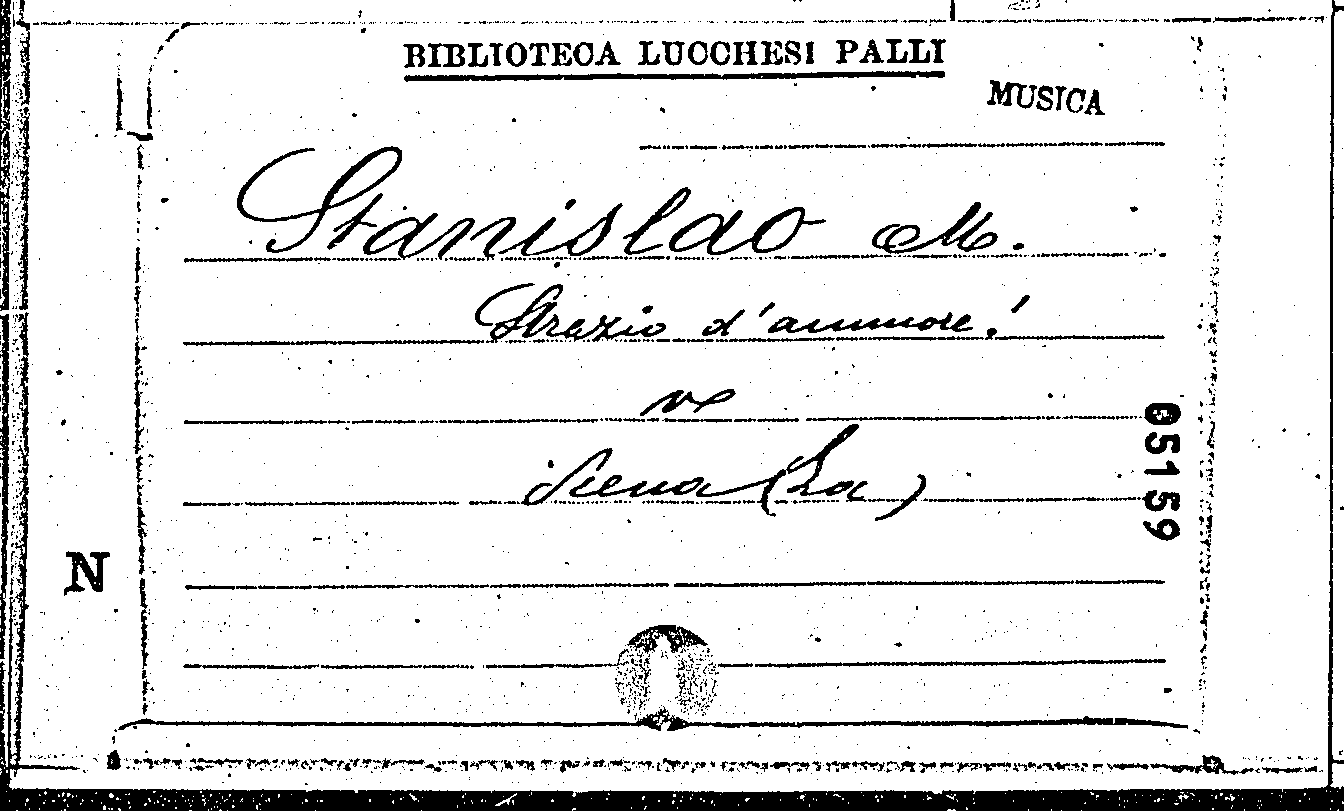 BIBLIOTECA LUCCHESI PALLI
MUSICA
Stanislao M.
Strazio d'ammore!
ve
Siena (La)
05159
N